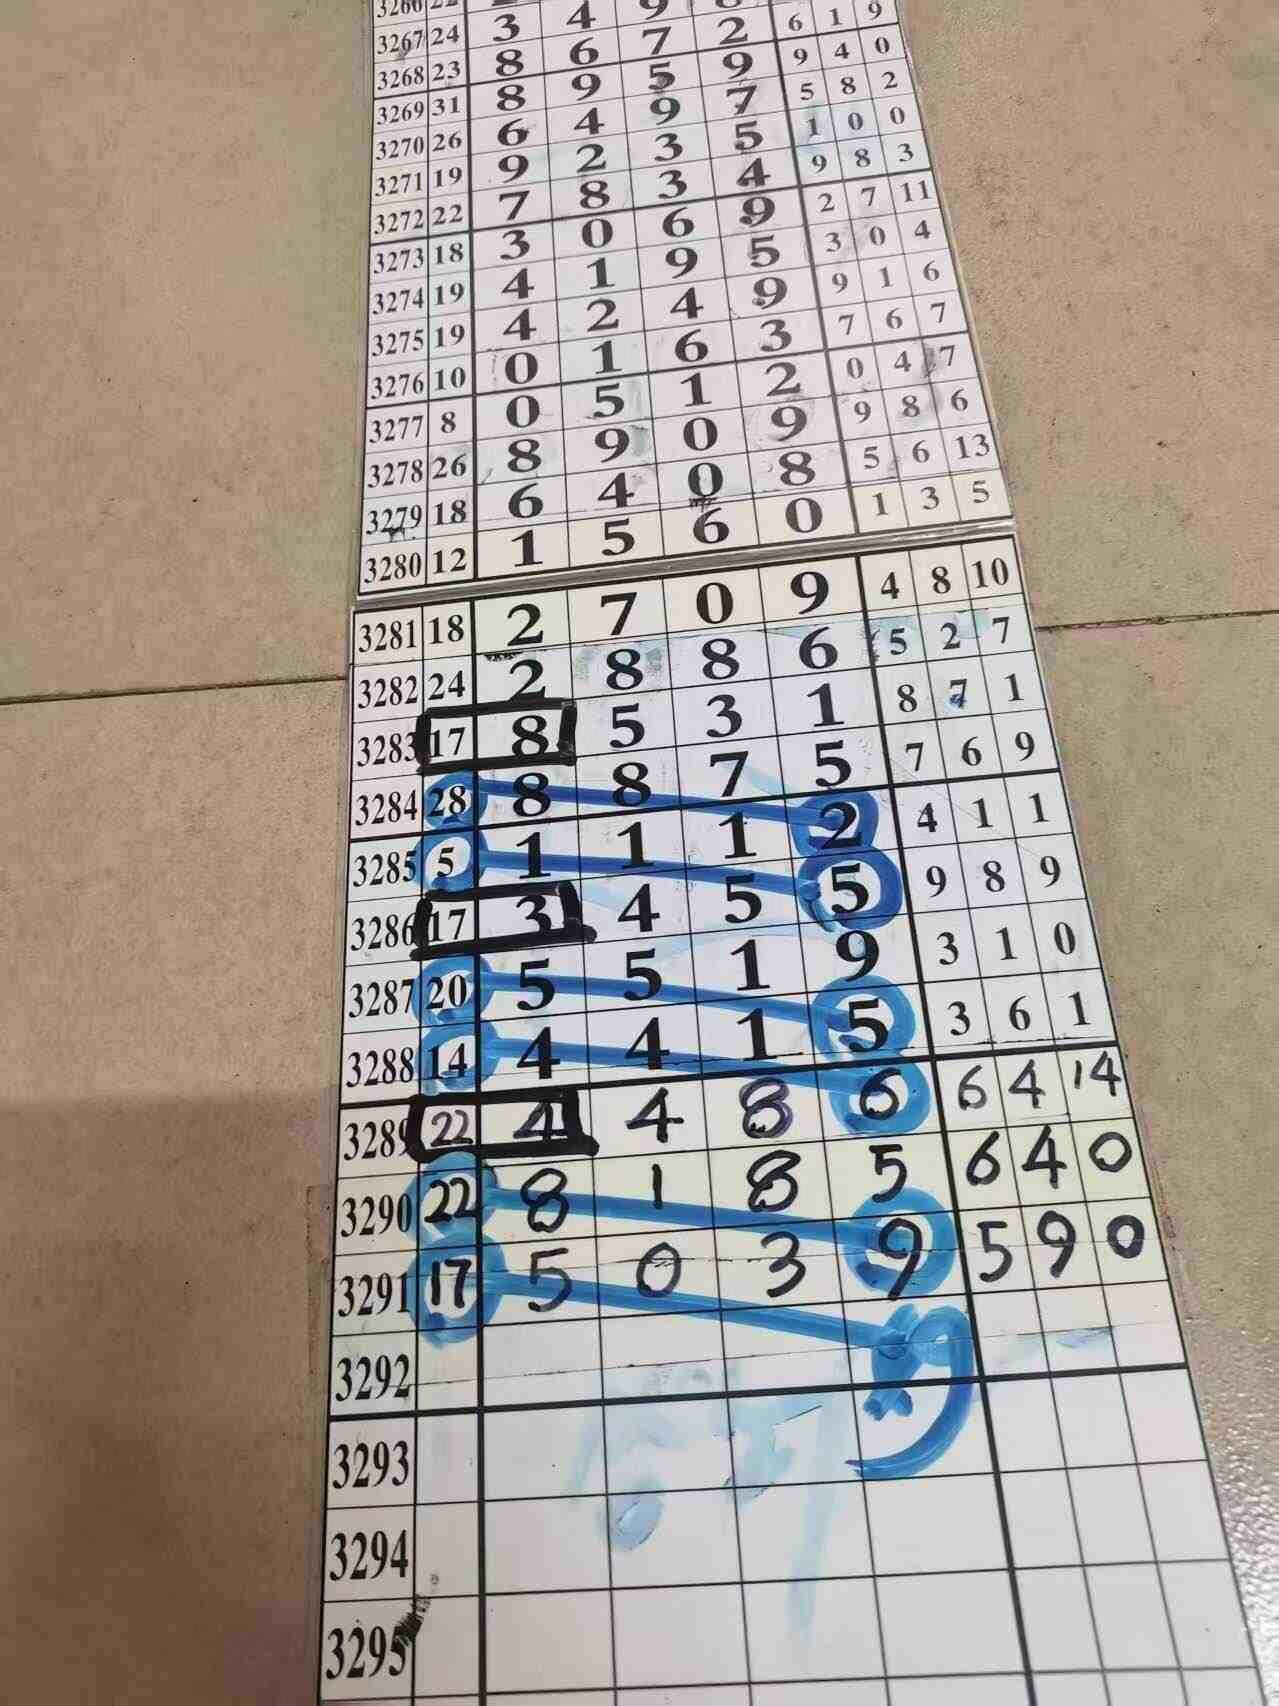 3266 22
3267 24 3 4 9 8
3268 23 8 6 7 2 6 1 9
3269 31 8 9 5 9 9 4 0
3270 26 6 4 9 7 5 8 2
3271 19 9 2 3 5 1 0 0
3272 22 7 8 3 4 9 8 3
3273 18 3 0 6 9 2 7 11
3274 19 4 1 9 5 3 0 4
3275 19 4 2 4 9 9 1 6
3276 10 0 1 6 3 7 6 7
3277 8 0 5 1 2 0 4 7
3278 26 8 9 0 9 9 8 6
3279 18 6 4 0 8 5 6 13
3280 12 1 5 6 0 1 3 5
3281 18 2 7 0 9 4 8 10
3282 24 2 8 8 6 5 2 7
3283 17 8 5 3 1 8 7 1
3284 28 8 8 7 5 7 6 9
3285 5 1 1 1 2 4 1 1
3286 17 3 4 5 5 9 8 9
3287 20 5 5 1 9 3 1 0
3288 14 4 4 1 5 3 6 1
3289 22 4 4 8 6 6 4 14
3290 22 8 1 8 5 6 4 0
3291 17 5 0 3 9 5 9 0
3292
3293
3294
3295